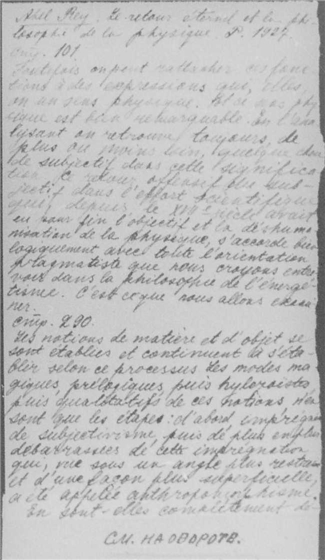 Abel Rey. Le retour éternel et la phi-
losophie de la physique P. 1927.
стр. 101
Toutefois on peut rattacher ces fonc
tions à des expressions qui, elles,
on un sens physique. Et ce sens phy
sique est bien remarquable. En l'ana
lysant on retrouve, toujours, de
plus ou moins loin, quelque chose
de subjectif dans cette significa
tion. Ce retour offensif du sub-
jectif dans l'effort scientifique
qui, depuis le XVI siècle avait
eu pour fin l'objectif et la déshuma
nisation de la physique, s'accorde bien
logiquement avec toute l'orientation
pragmatiste que nous croyons entre
voir dans la philosophie de l'énergé-
tisme. C'est ce que nous allons exami
ner.
стр. 290.
Les notions de matière et d'objet se
sont établies et continuent à s'éta-
blir selon ce processus. Les modes ma
giques, prélogiques, puis hylozoistes
puis qualitatifs de ces notions n'en
sont que les étapes: d'abord imprégnées
de subjectivisme, puis de plus en plus
débarrassées de cette imprégnation
qui, sous un angle plus restreint
et d'une façon plus superficielle,
a été appelée anthropomorphisme.
En sont-elles complètement dé-
см. на обороте.